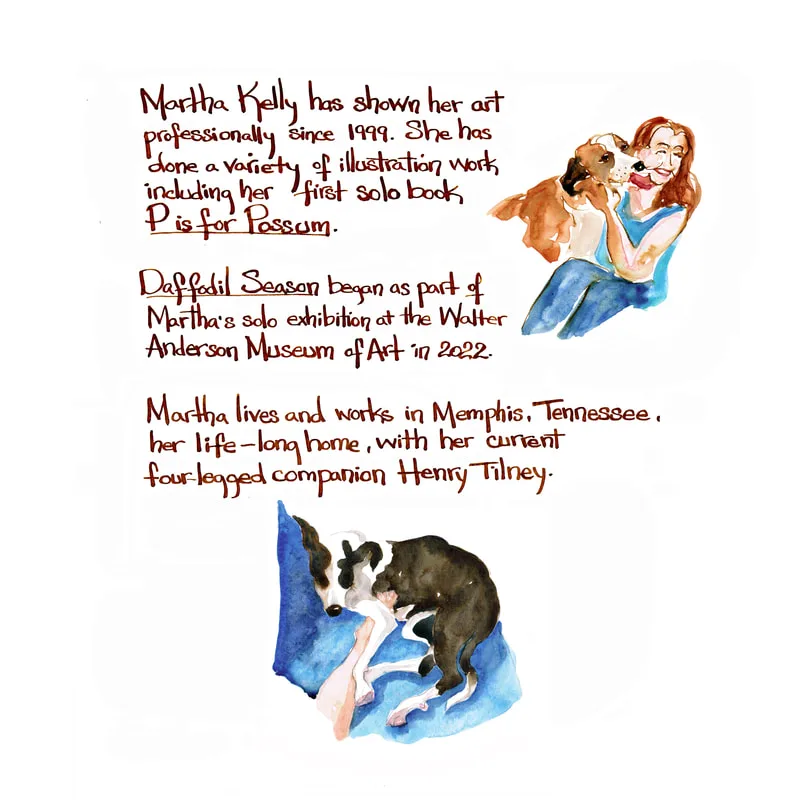 Martha Kelly has shown her art
professionally since 1999. She has
done a variety of illustration work
including her first solo book
P is for Possum.
Daffodil Season began as part of
Martha's solo exhibition at the Walter
Anderson Museum of Art in 2022.
Martha lives and works in Memphis, Tennessee,
her life-long home, with her current
four-legged companion Henry Tilney.